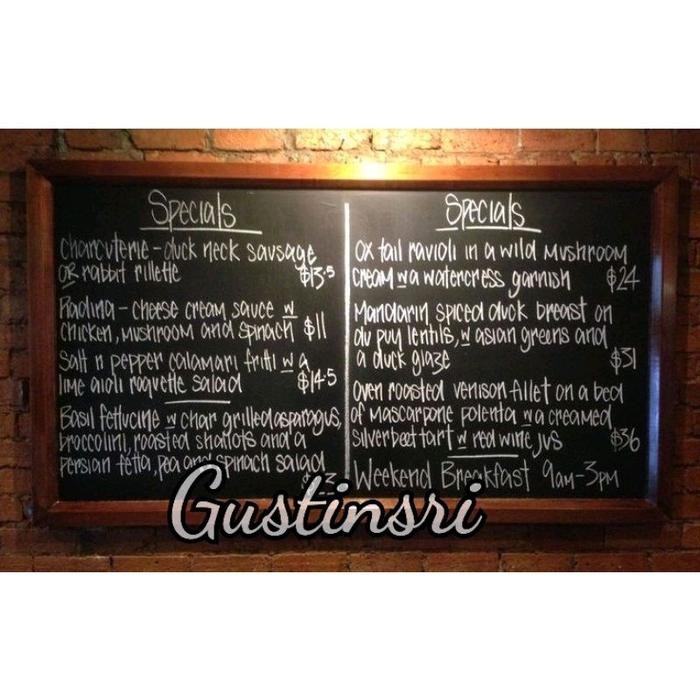 Specials
charcuterie - duck neck sausage
OR rabbit rillette $13.5
cheese cream sauce w
chicken, mushroom and spinach $11
Salt n pepper calamari fritti w a
lime aioli roquette salad $14.5
Basil fettucine w char grilled asparagus,
broccolini, roasted shallots and a
persian fetta, pea and spinach salad
Specials
Ox tail ravioli in a wild mushroom
cream w a watercress garnish $24
Mandarin spiced duck breast on
du puy lentils, w asian greens and
a duck glaze $31
Oven roasted venison fillet on a bed
of mascarpone polenta w a creamed
silverbeet tart w red wine jus $36
Weekend Breakfast 9am-3pm
Gustinsri